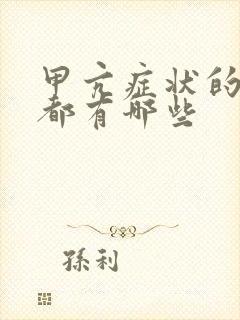 甲亢症状的
都有哪些
孫利